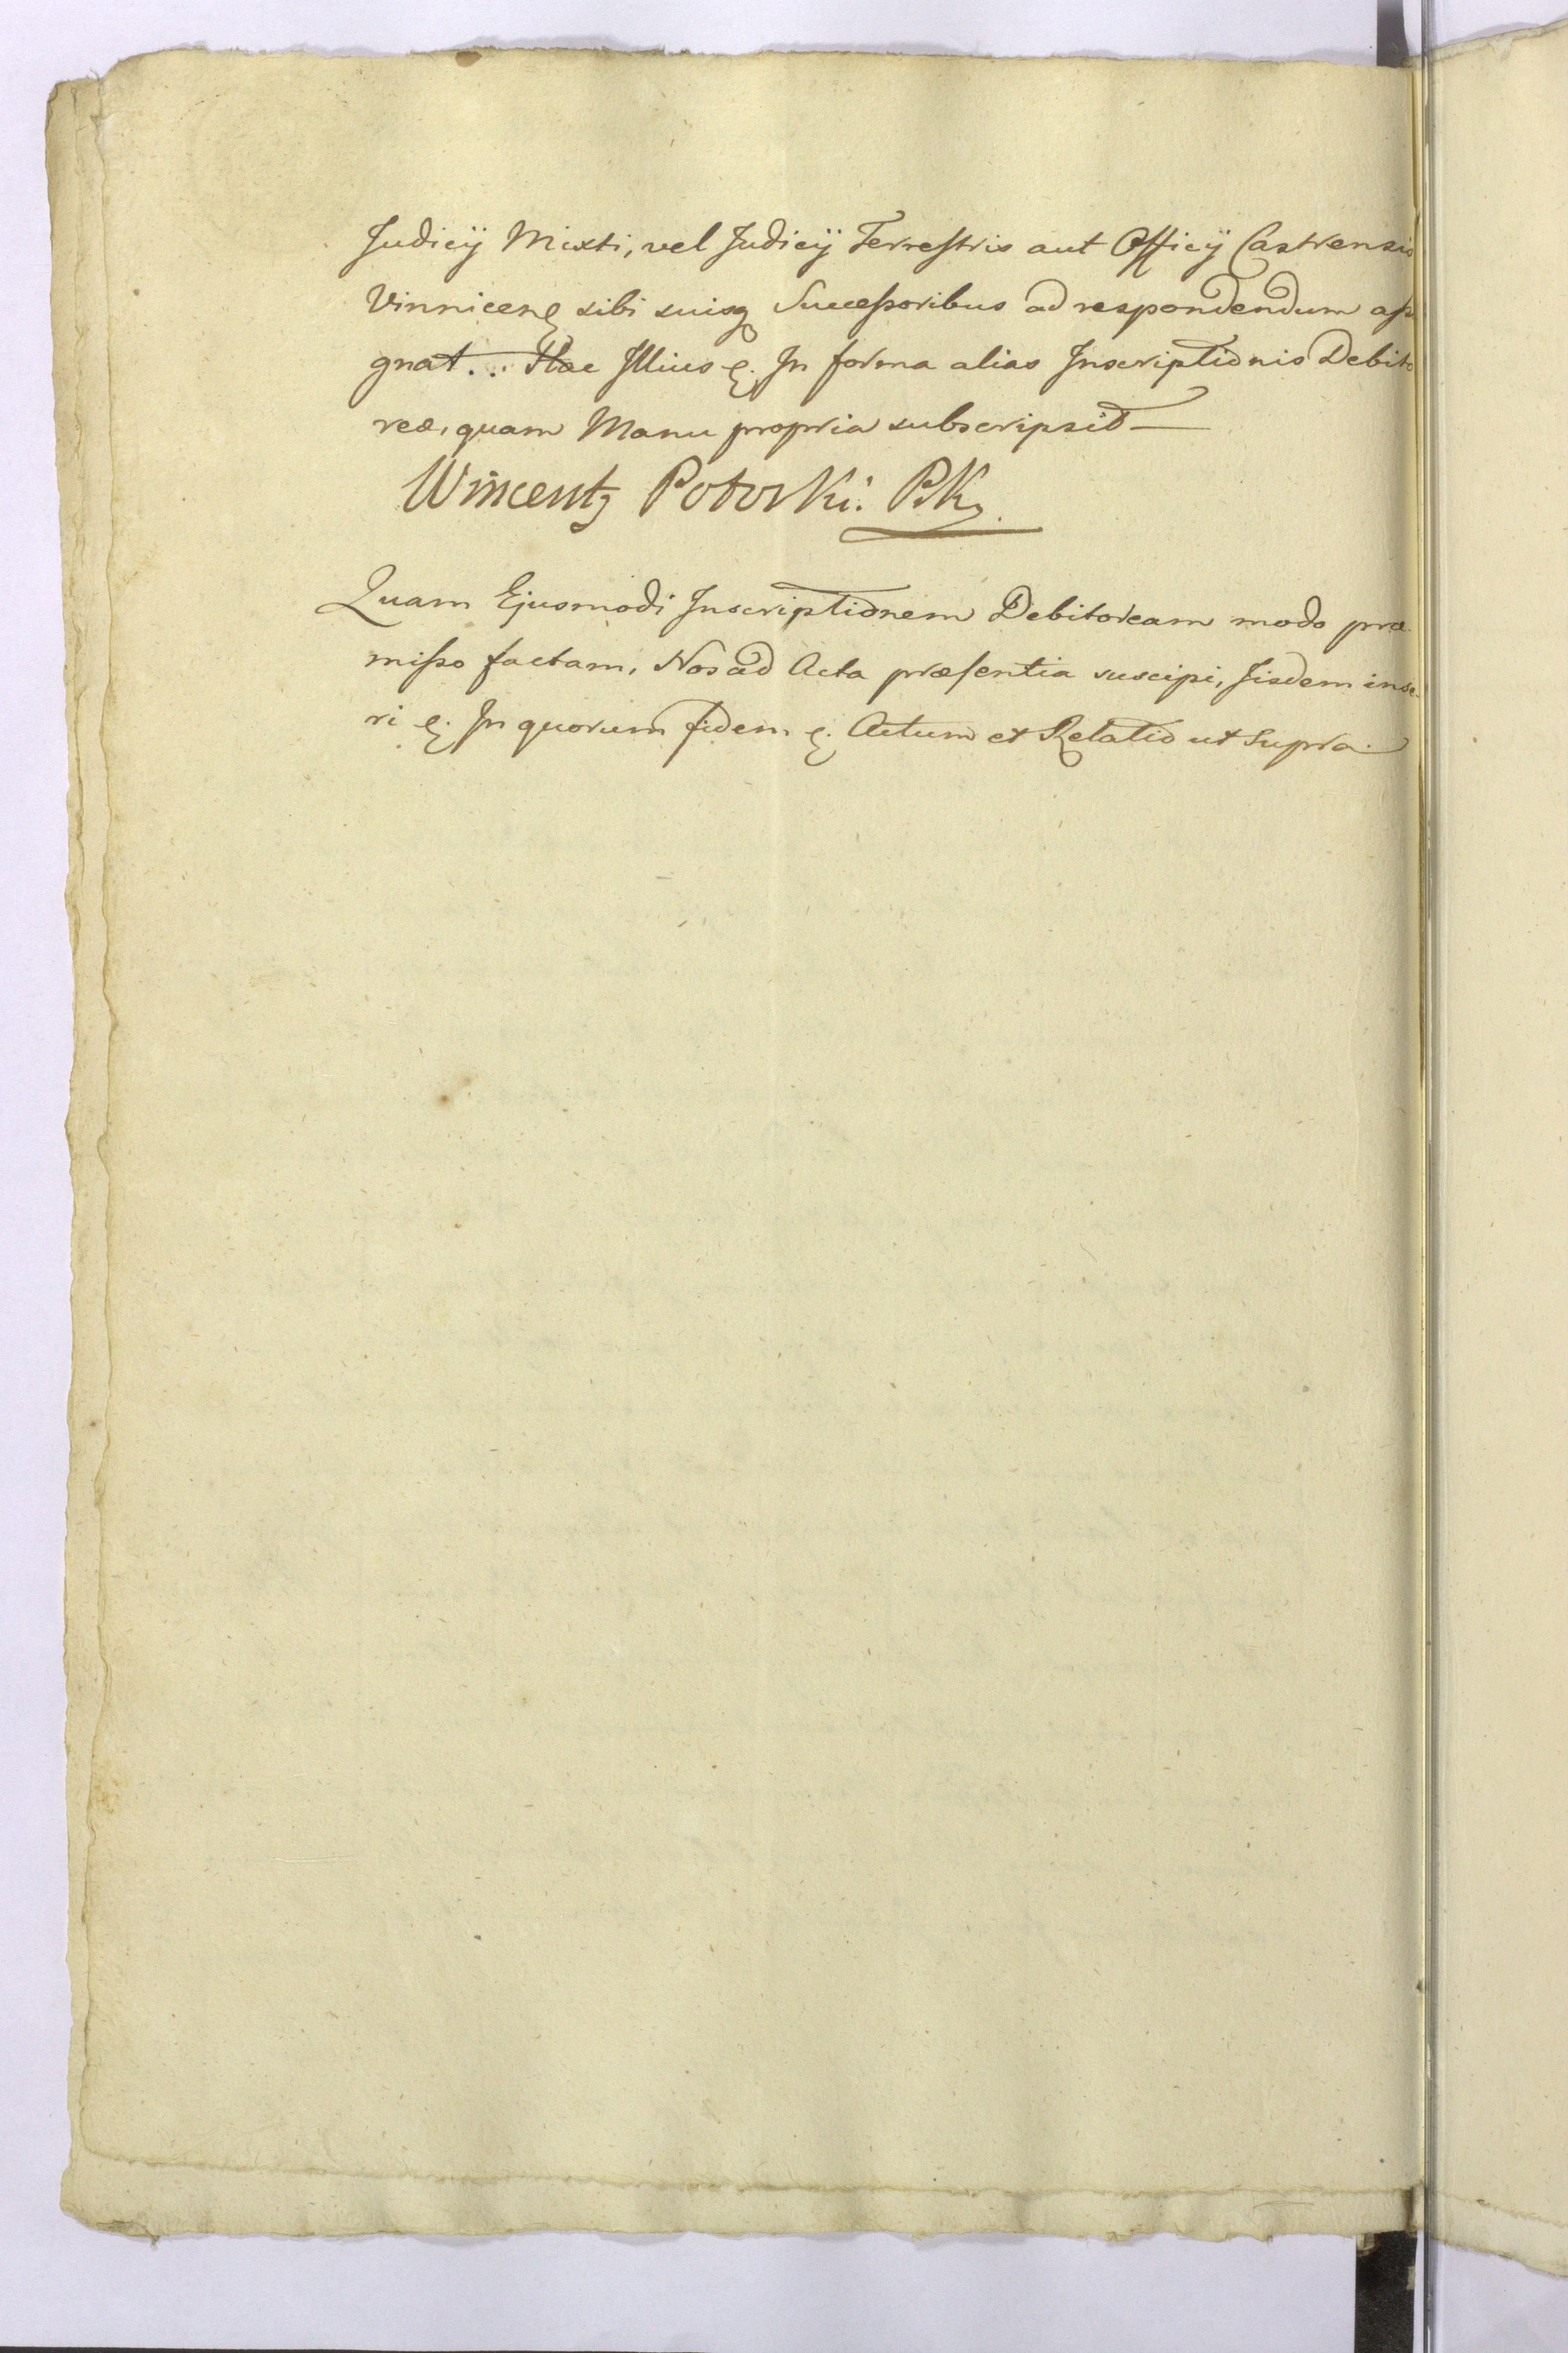 Judicÿ Mixti, vel Judicÿ Terrestris aut Officÿ Castrensis
Vinnicen: sibi suisq Successoribus ad respondendum assi
gnat... Hac Illius &. In forma alias Inscriptionis Debito
reæ, quam Manu propria subscripsit—
Wincenty Potocki. PKg.
Quam Ejusmodi Inscriptionem Debitoream modo præ
misso factam, Nos ad Acta præsentia suscipi, Iisdem inse
ri &. In quorum fidem &. Actum et Relatio ut Supra.